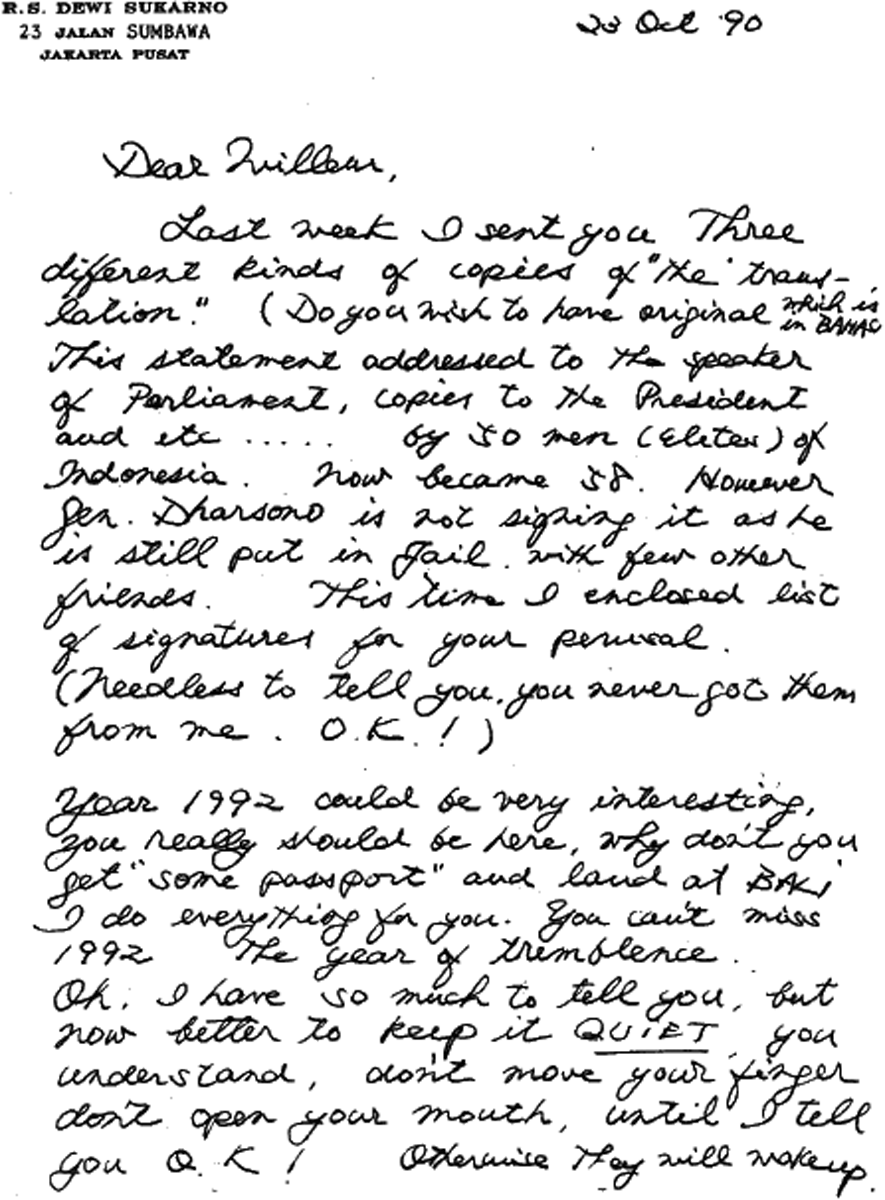 R.S. DEWI SUKARNO
23 JALAN SUMBAWA
JAKARTA PUSAT
23 Oct '90
Dear Willem,
Last week I sent you Three
different kinds of copies of "the trans-
lation." (Do you wish to have original which is
in BAHAS
This statement addressed to the speaker
of Parliament, copies to the President
and etc ..... by 50 men (Elites) of
Indonesia. Now became 58. However
Gen. Dharsono is not signing it as he
is still put in Jail. with few other
friends. This time I enclosed list
of signatures for your perusal.
(Needless to tell you, you never got them
from me. O.K.!)
Year 1992 could be very interesting,
you really should be here, why don't you
get "some passport" and land at BALI
I do everything for you. You can't miss
1992 The year of tremblence.
Oh, I have so much to tell you, but
now better to keep it QUIET. you
understand, don't move your finger
don't open your mouth, until I tell
you O.K! Otherwise They will wakeup.